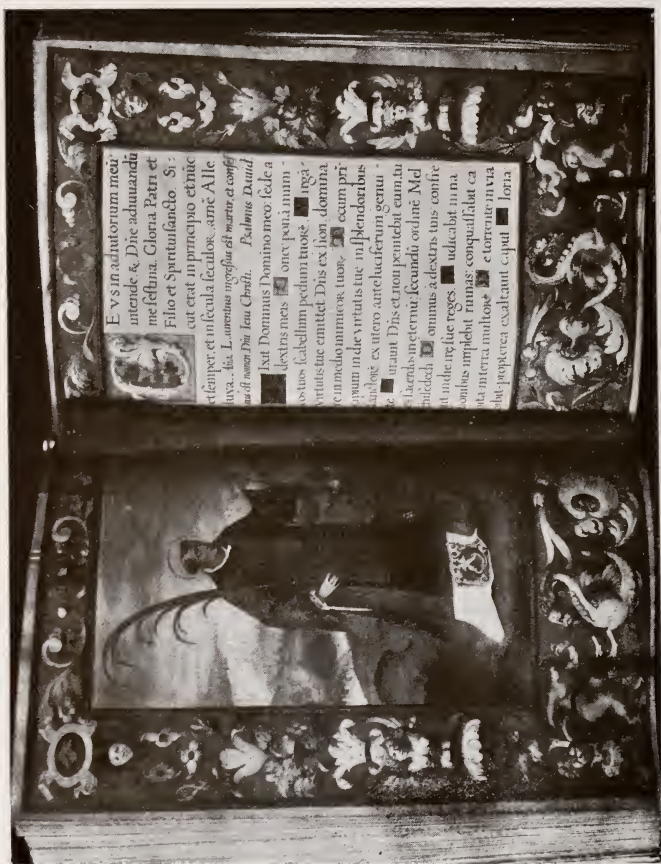 Eus in adiutorium meū
intende & Dñe adiuuandū
me festina. Gloria Patri et
Filio et Spiritui sancto Si:
cut erat in principio et nūc
et semper, et in secula seculoꝝ. amē Alle
luya. Añа. Laurentius ingressus est martir, et confes
sus est nomen Dñi Iesu Christi. Psalmus Dauid
Ixit Dominus Domino meo: sede a
dextris meis onec ponā inimi-
os tuos scabellum pedum tuoꝝ irgā
virtutis tue emittet Dñs ex sion: domina
e in medio inimicoꝝ tuoꝝ ecum pri-
cipium in die virtutis tue in splendoribus
sanctoꝝ ex utero ante luciferum genui-
te urauit Dñs et non penitebit eum: tu
sacerdos in eternū: secundū ordinē Mel
chisedech ominus a dextris tuis confre
it in die irę sue reges. udicabit in na
tionibus implebit ruinas: conquassabit ca
pita in terra multoꝝ e torrente in via
ebit: propterea exaltauit caput loria